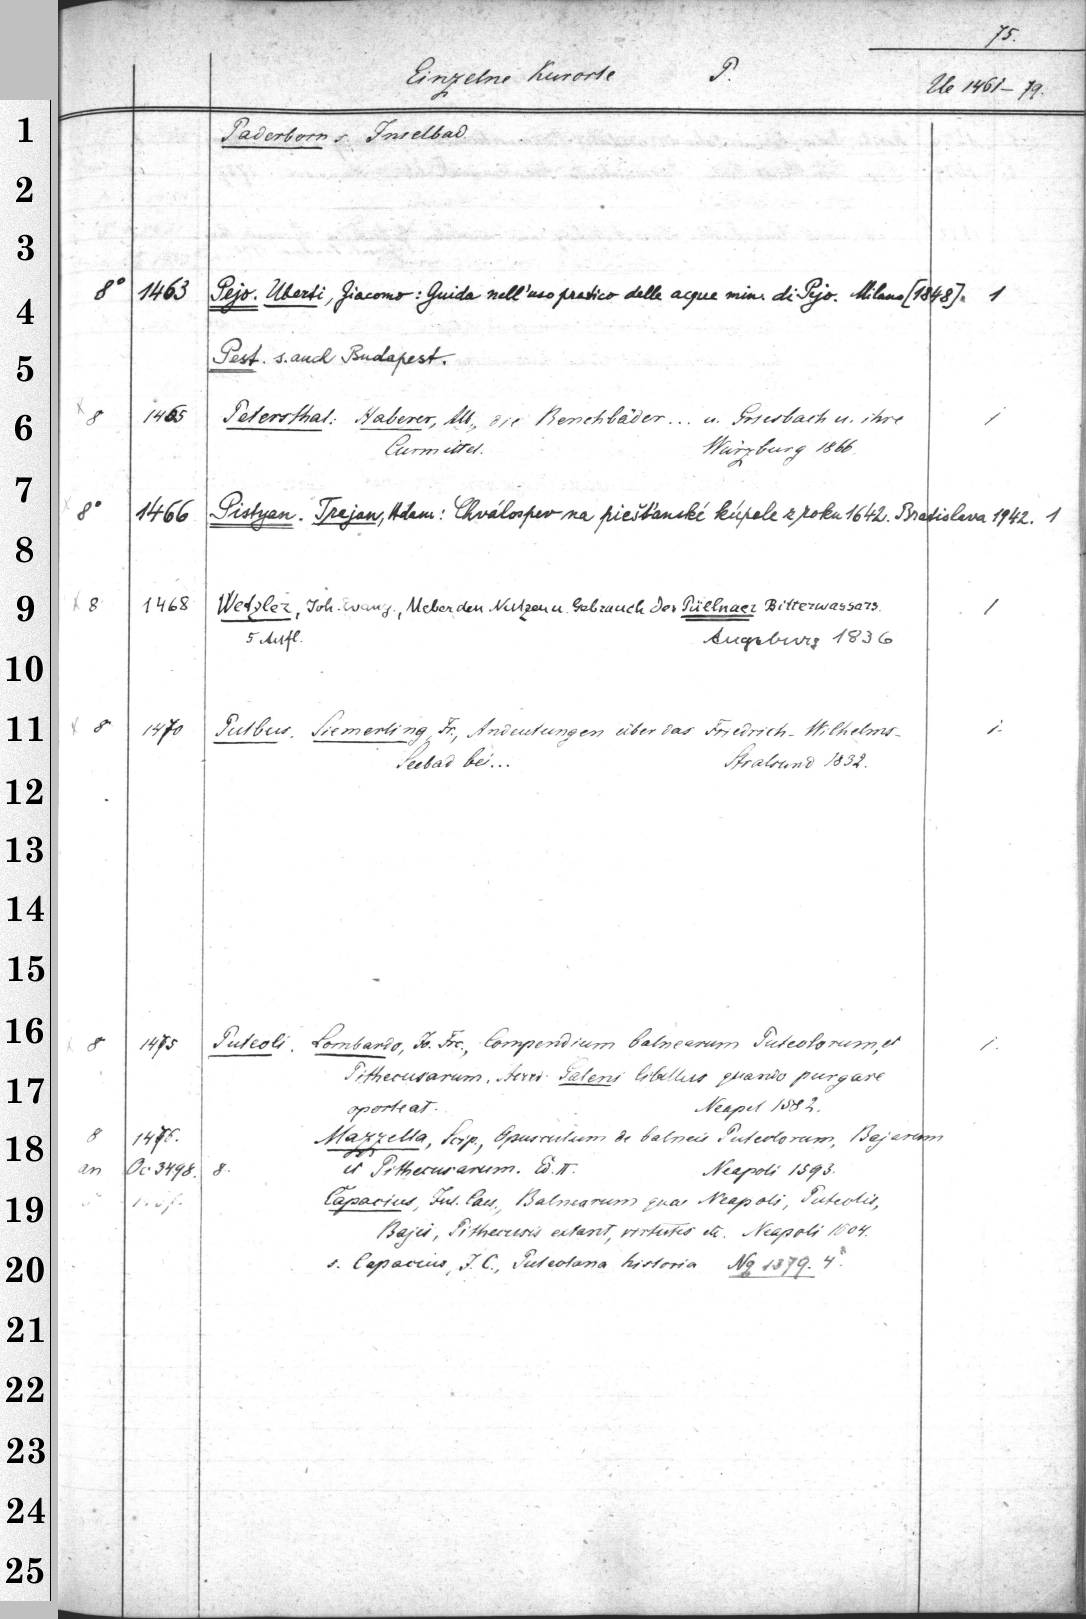 75.
Einzelne Kurorte P. Ub 1461-79.
1 Paderborn s. Inselbad.
2
3
8° 1463 Pejo. Uberti, Giacomo: Guida nell'uso pratico delle acque min. di Pejo. Milano [1848]. 1
4
Pest. s. auch Budapest.
5
x 8 1465 Petersthal: Haberer, M., die Renchbäder... u. Griesbach u. ihre 1
6
Curmittel. Würzburg 1866.
7
x 8° 1466 Pistyan. Trajan, Adam: Chválospev na piešťanské kúpele z roku 1642. Bratislava 1942. 1
8
x 8 1468 Wetzler, Joh. Evang., Ueber den Nutzen u. Gebrauch des Püllnaer Bitterwassers. 1
9
5 Aufl. Augsburg 1836
10
x 8 1470 Putbus. Siemerling, Fr., Andeutungen über das Friedrich-Wilhelms- 1.
11
Seebad bei... Stralsund 1832.
12
13
14
15
16
x 8 1475 Puteoli. Lombardo, Jo. Frc., Compendium balnearum Puteolorum, et 1.
Pithecusarum. Galeni libellus quando purgare
17
oporteat. Neapel 1582.
8 1476. Mazzella, Scip., Opusculum de balneis Puteolorum, Bajarum
18
an Oc 3498. 8. et Pithecusarum. Ed. II. Neapoli 1593.
Capacius, Jul. Caes., Balnearum quae Neapoli, Puteolis,
19
Bajis, Pithecusis extant, virtutis etc. Neapoli 1604.
s. Capacius, J. C., Puteolana historia Nq 1379. 4°.
20
21
22
23
24
25